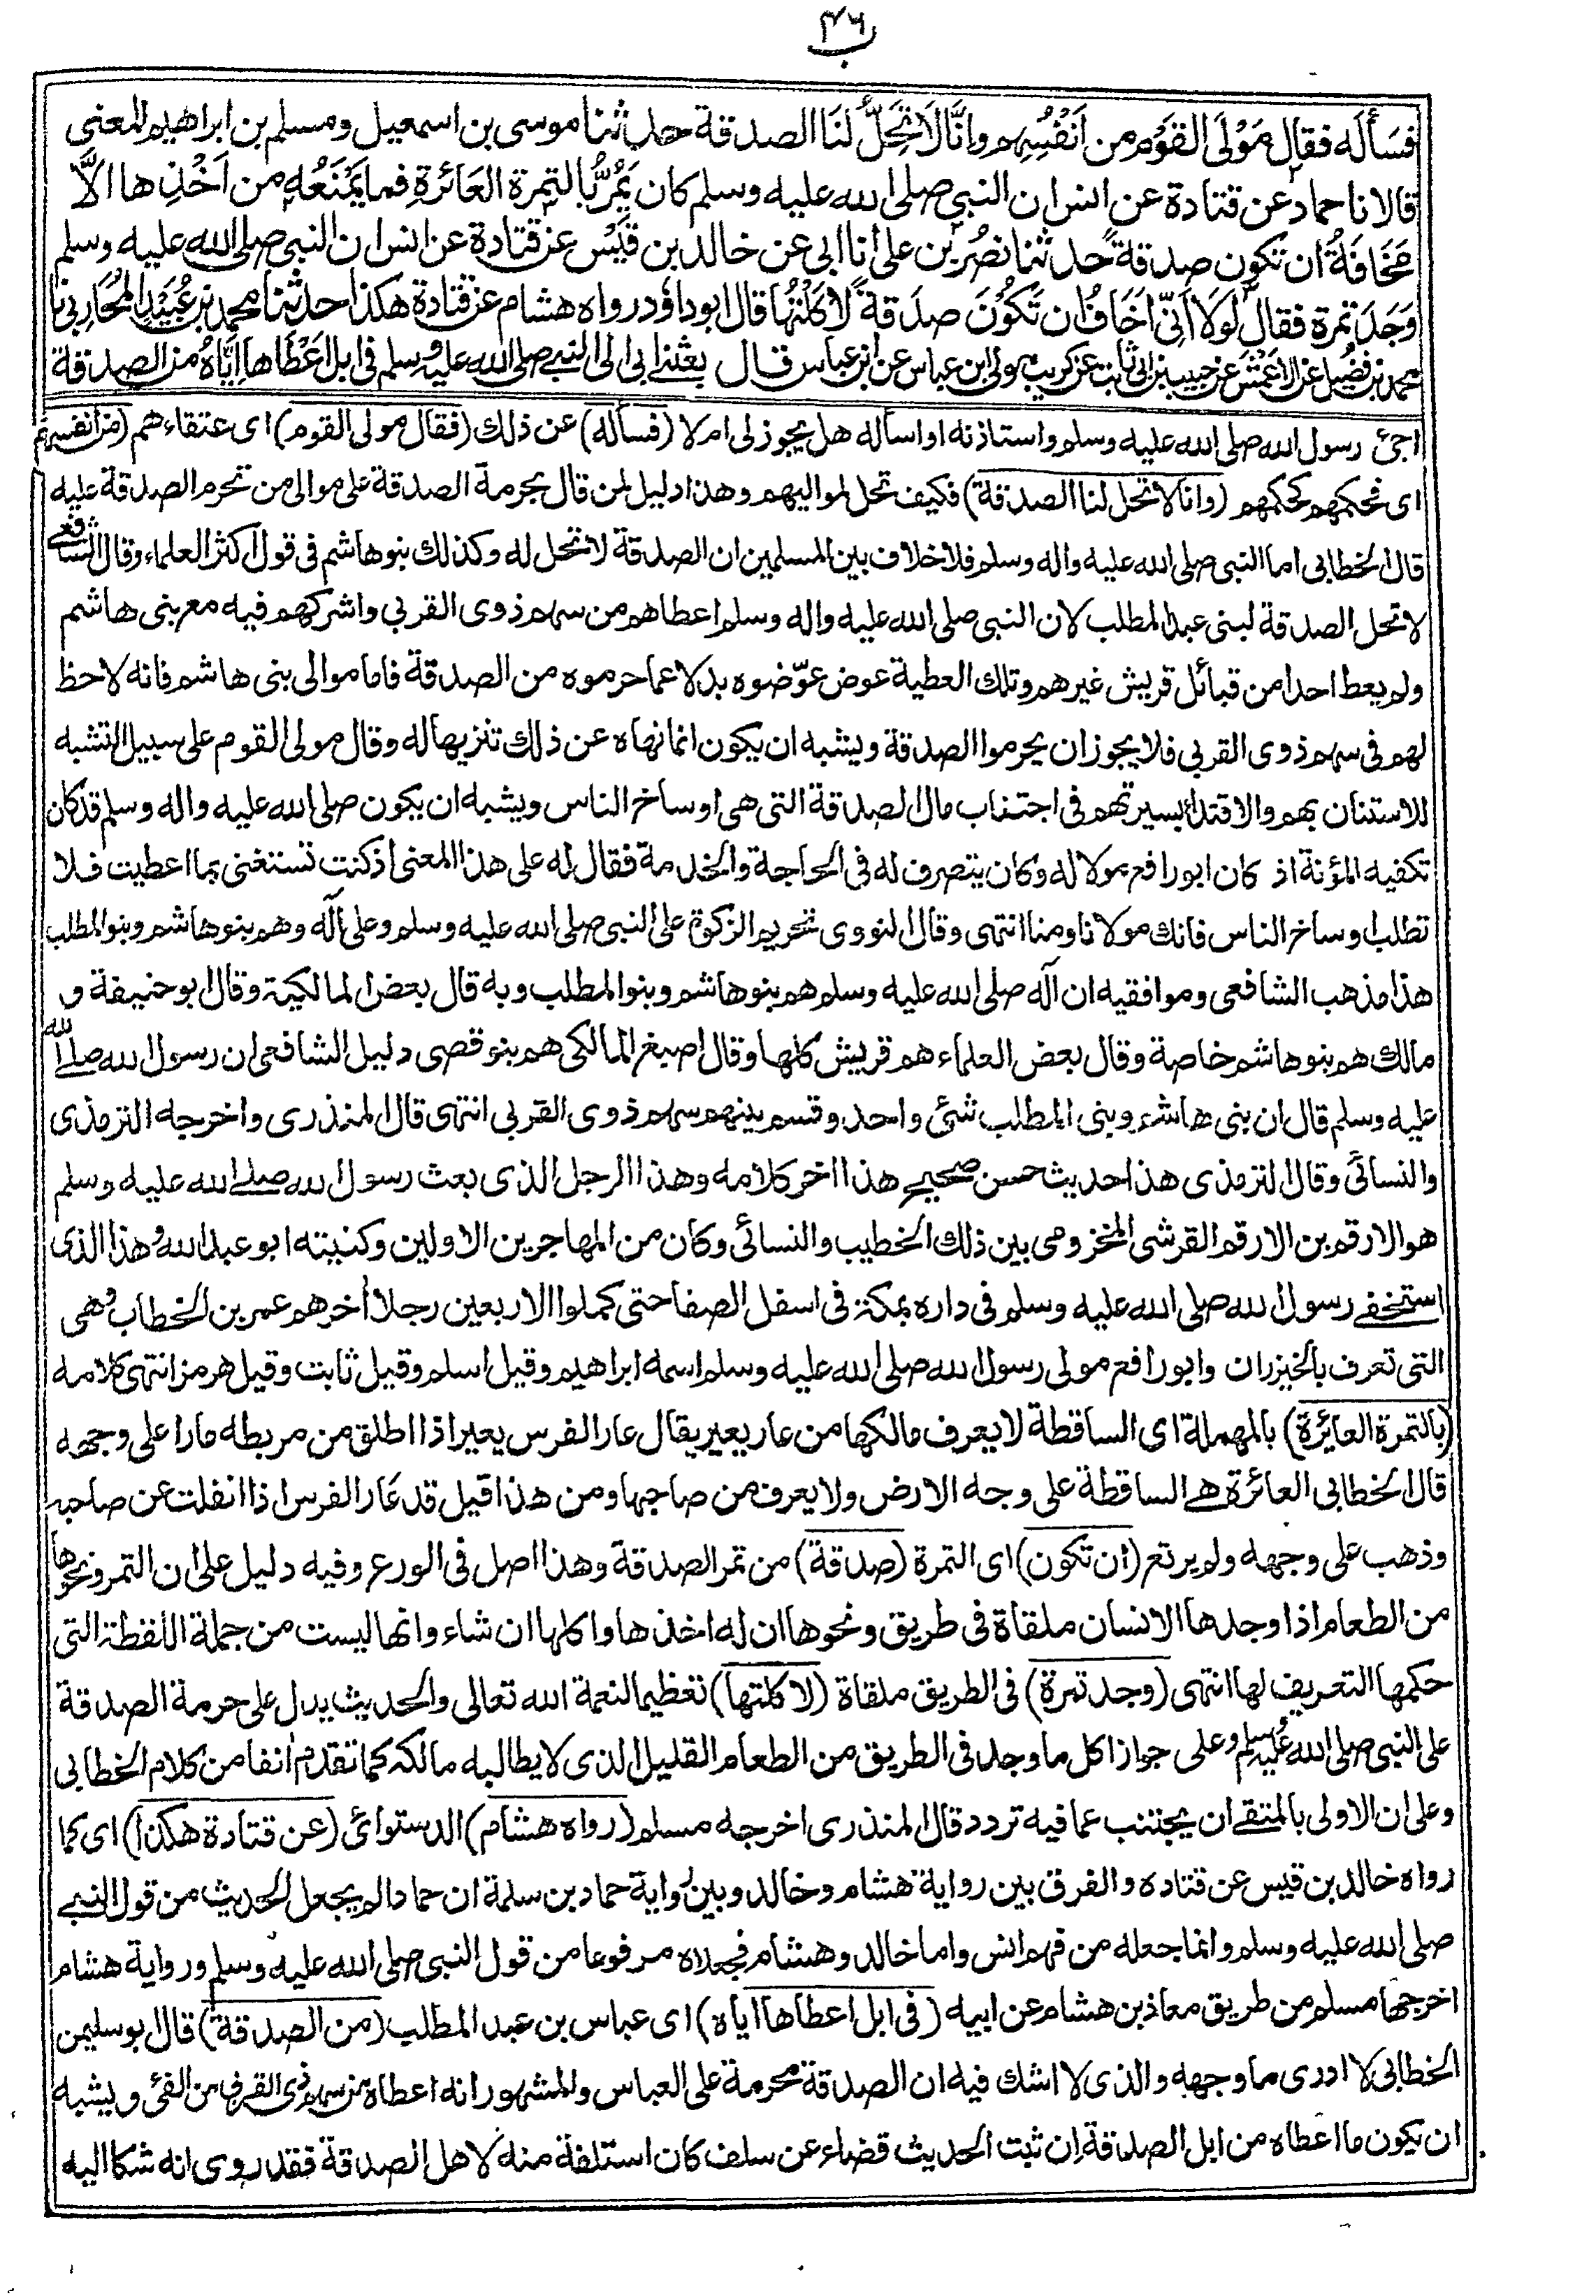 ٤٦
فسأله فقال مَوْلَى القَوْمِ من اَنْفُسِهم وانَّا لاَ تَحِلُّ لنَا الصدقة حدثنا موسى بن اسمعيل ومسلم بن ابراهيم المعنى
قالا نا حماد عن قتادة عن انس ان النبي صلى الله عليه وسلم كان يَمُرُّ بالتمرة العَائرةِ فما يَمْنَعُه من اَخْذِها الاَّ
مَخَافَةُ ان تكون صدقةً حدثنا نصْر بن على انا ابى عن خالد بن قَيْس عن قتادة عن انس ان النبي صلى الله عليه وسلم
وَجَدَ تمرة فقال لَوْلاَ اَنِّي اَخَافُ ان تَكُوْنَ صدَقةً لاَكَلْتُهَا قال ابوداؤد رواه هشام عن قتادة هكذا حدثنا محمد بن عُبَيْدٍ المُحَارِبي نا
محمد بن فضيل عن الاَعْمَش عن حبيب بن ابى ثابت عن كريب مولى ابن عباس عن ابن عباس قال بعثنى ابى الى النبي صلى الله عليه وسلم فى ابل اَعْطَاها اِيَّاهُ من الصدقة
اجئ رسول الله صلى الله عليه وسلم واستاذنه او اسأله هل يجوز لى ام لا (فسأله) عن ذلك (فقال مولى القوم) اى عتقاءهم (من انفسهم)
اى فحكمهم كحكمهم (وانا لا تحل لنا الصدقة) فكيف تحل لمواليهم وهذا دليل لمن قال بحرمة الصدقة على موالى من تحرم الصدقة عليه
قال الخطابى اما النبي صلى الله عليه واله وسلم فلا خلاف بين المسلمين ان الصدقة لا تحل له وكذلك بنوهاشم فى قول اكثر العلماء وقال الشافعى
لا تحل الصدقة لبنى عبد المطلب لان النبي صلى الله عليه واله وسلم اعطاهم من سهم ذوى القربى واشركهم فيه مع بنى هاشم
ولم يعط احدا من قبائل قريش غيرهم وتلك العطية عوض عوّضوه بدلا عما حرموه من الصدقة فاما موالى بنى هاشم فانه لا حظ
لهم فى سهم ذوى القربى فلا يجوز ان يحرموا الصدقة ويشبه ان يكون انما نهاه عن ذلك تنزيها له وقال مولى القوم على سبيل التشبه
للاستنان بهم والاقتداء بسيرتهم فى اجتناب مال الصدقة التى هى اوساخ الناس ويشبه ان يكون صلى الله عليه واله وسلم قد كان
تكفيه المؤنة اذ كان ابورافع مولا له وكان يتصرف له فى الحاجة والخدمة فقال له على هذا المعنى اذ كنت تستغنى بما اعطيت فلا
تطلب اوساخ الناس فانك مولانا ومنا انتهى وقال النووى تحريم الزكوة على النبي صلى الله عليه وسلم وعلى آله وهم بنوهاشم وبنو المطلب
هذا مذهب الشافعى وموافقيه ان آله صلى الله عليه وسلم هم بنوهاشم وبنو المطلب وبه قال بعض المالكية وقال ابوحنيفة و
مالك هم بنوهاشم خاصة وقال بعض العلماء هم قريش كلها وقال اصبغ المالكى هم بنوقصى دليل الشافعى ان رسول الله صلى الله
عليه وسلم قال ان بنى هاشم وبنى المطلب شئ واحد وقسم بينهم سهم ذوى القربى انتهى قال المنذرى واخرجه الترمذى
والنسائى وقال الترمذى هذا حديث حسن صحيح هذا اخر كلامه وهذا الرجل الذى بعث رسول الله صلى الله عليه وسلم
هو الارقم بن الارقم القرشى المخزومى بين ذلك الخطيب والنسائى وكان من المهاجرين الاولين وكنيته ابوعبدالله وهذا الذى
استخفى رسول الله صلى الله عليه وسلم فى داره بمكة فى اسفل الصفا حتى كملوا الاربعين رجلا اخرهم عمر بن الخطاب وهى
التى تعرف بالخيزران وابورافع مولى رسول الله صلى الله عليه وسلم اسمه ابراهيم وقيل اسلم وقيل ثابت وقيل هرمز انتهى كلامه
(بالتمرة العائرة) بالمهملة اى الساقطة لا يعرف مالكها من عار يعير يقال عار الفرس يعير اذا اطلق من مربطه مارا على وجهه
قال الخطابى العائرة هى الساقطة على وجه الارض ولا يعرف من صاحبها ومن هذا قيل قد عار الفرس اذا انفلت عن صاحبه
وذهب على وجهه ولم يرتع (ان تكون) اى التمرة (صدقة) من تمر الصدقة وهذا اصل فى الورع وفيه دليل على ان التمر ونحوها
من الطعام اذا وجدها الانسان ملقاة فى طريق ونحوها ان له اخذها واكلها ان شاء وانها ليست من جملة اللقطة التى
حكمها التعريف لها انتهى (وجد تمرة) فى الطريق ملقاة (لاكلتها) تعظيما لنعمة الله تعالى والحديث يدل على حرمة الصدقة
على النبي صلى الله عليه وسلم وعلى جواز اكل ما وجد فى الطريق من الطعام القليل الذى لا يطالبه مالكه كما تقدم انفا من كلام الخطابى
وعلى ان الاولى بالمتقى ان يجتنب عما فيه تردد قال المنذرى اخرجه مسلم (رواه هشام) الدستوائى (عن قتادة هكذا) اى كما
رواه خالد بن قيس عن قتاده والفرق بين رواية هشام وخالد وبين رواية حماد بن سلمة ان حمادا لم يجعل الحديث من قول النبي
صلى الله عليه وسلم وانما جعله من فهم انس واما خالد وهشام فجعلاه مرفوعا من قول النبي صلى الله عليه وسلم ورواية هشام
اخرجها مسلم من طريق معاذ بن هشام عن ابيه (فى ابل اعطاها اياه) اى عباس بن عبد المطلب (من الصدقة) قال ابوسليمن
الخطابى لا ادرى ما وجهه والذى لا اشك فيه ان الصدقة محرمة على العباس والمشهور انه اعطاه من سهم ذى القربى من الفئ ويشبه
ان يكون ما اعطاه من ابل الصدقة اِن ثبت الحديث قضاء عن سلف كان استلفة منه لاهل الصدقة فقد روى انه شكا اليه